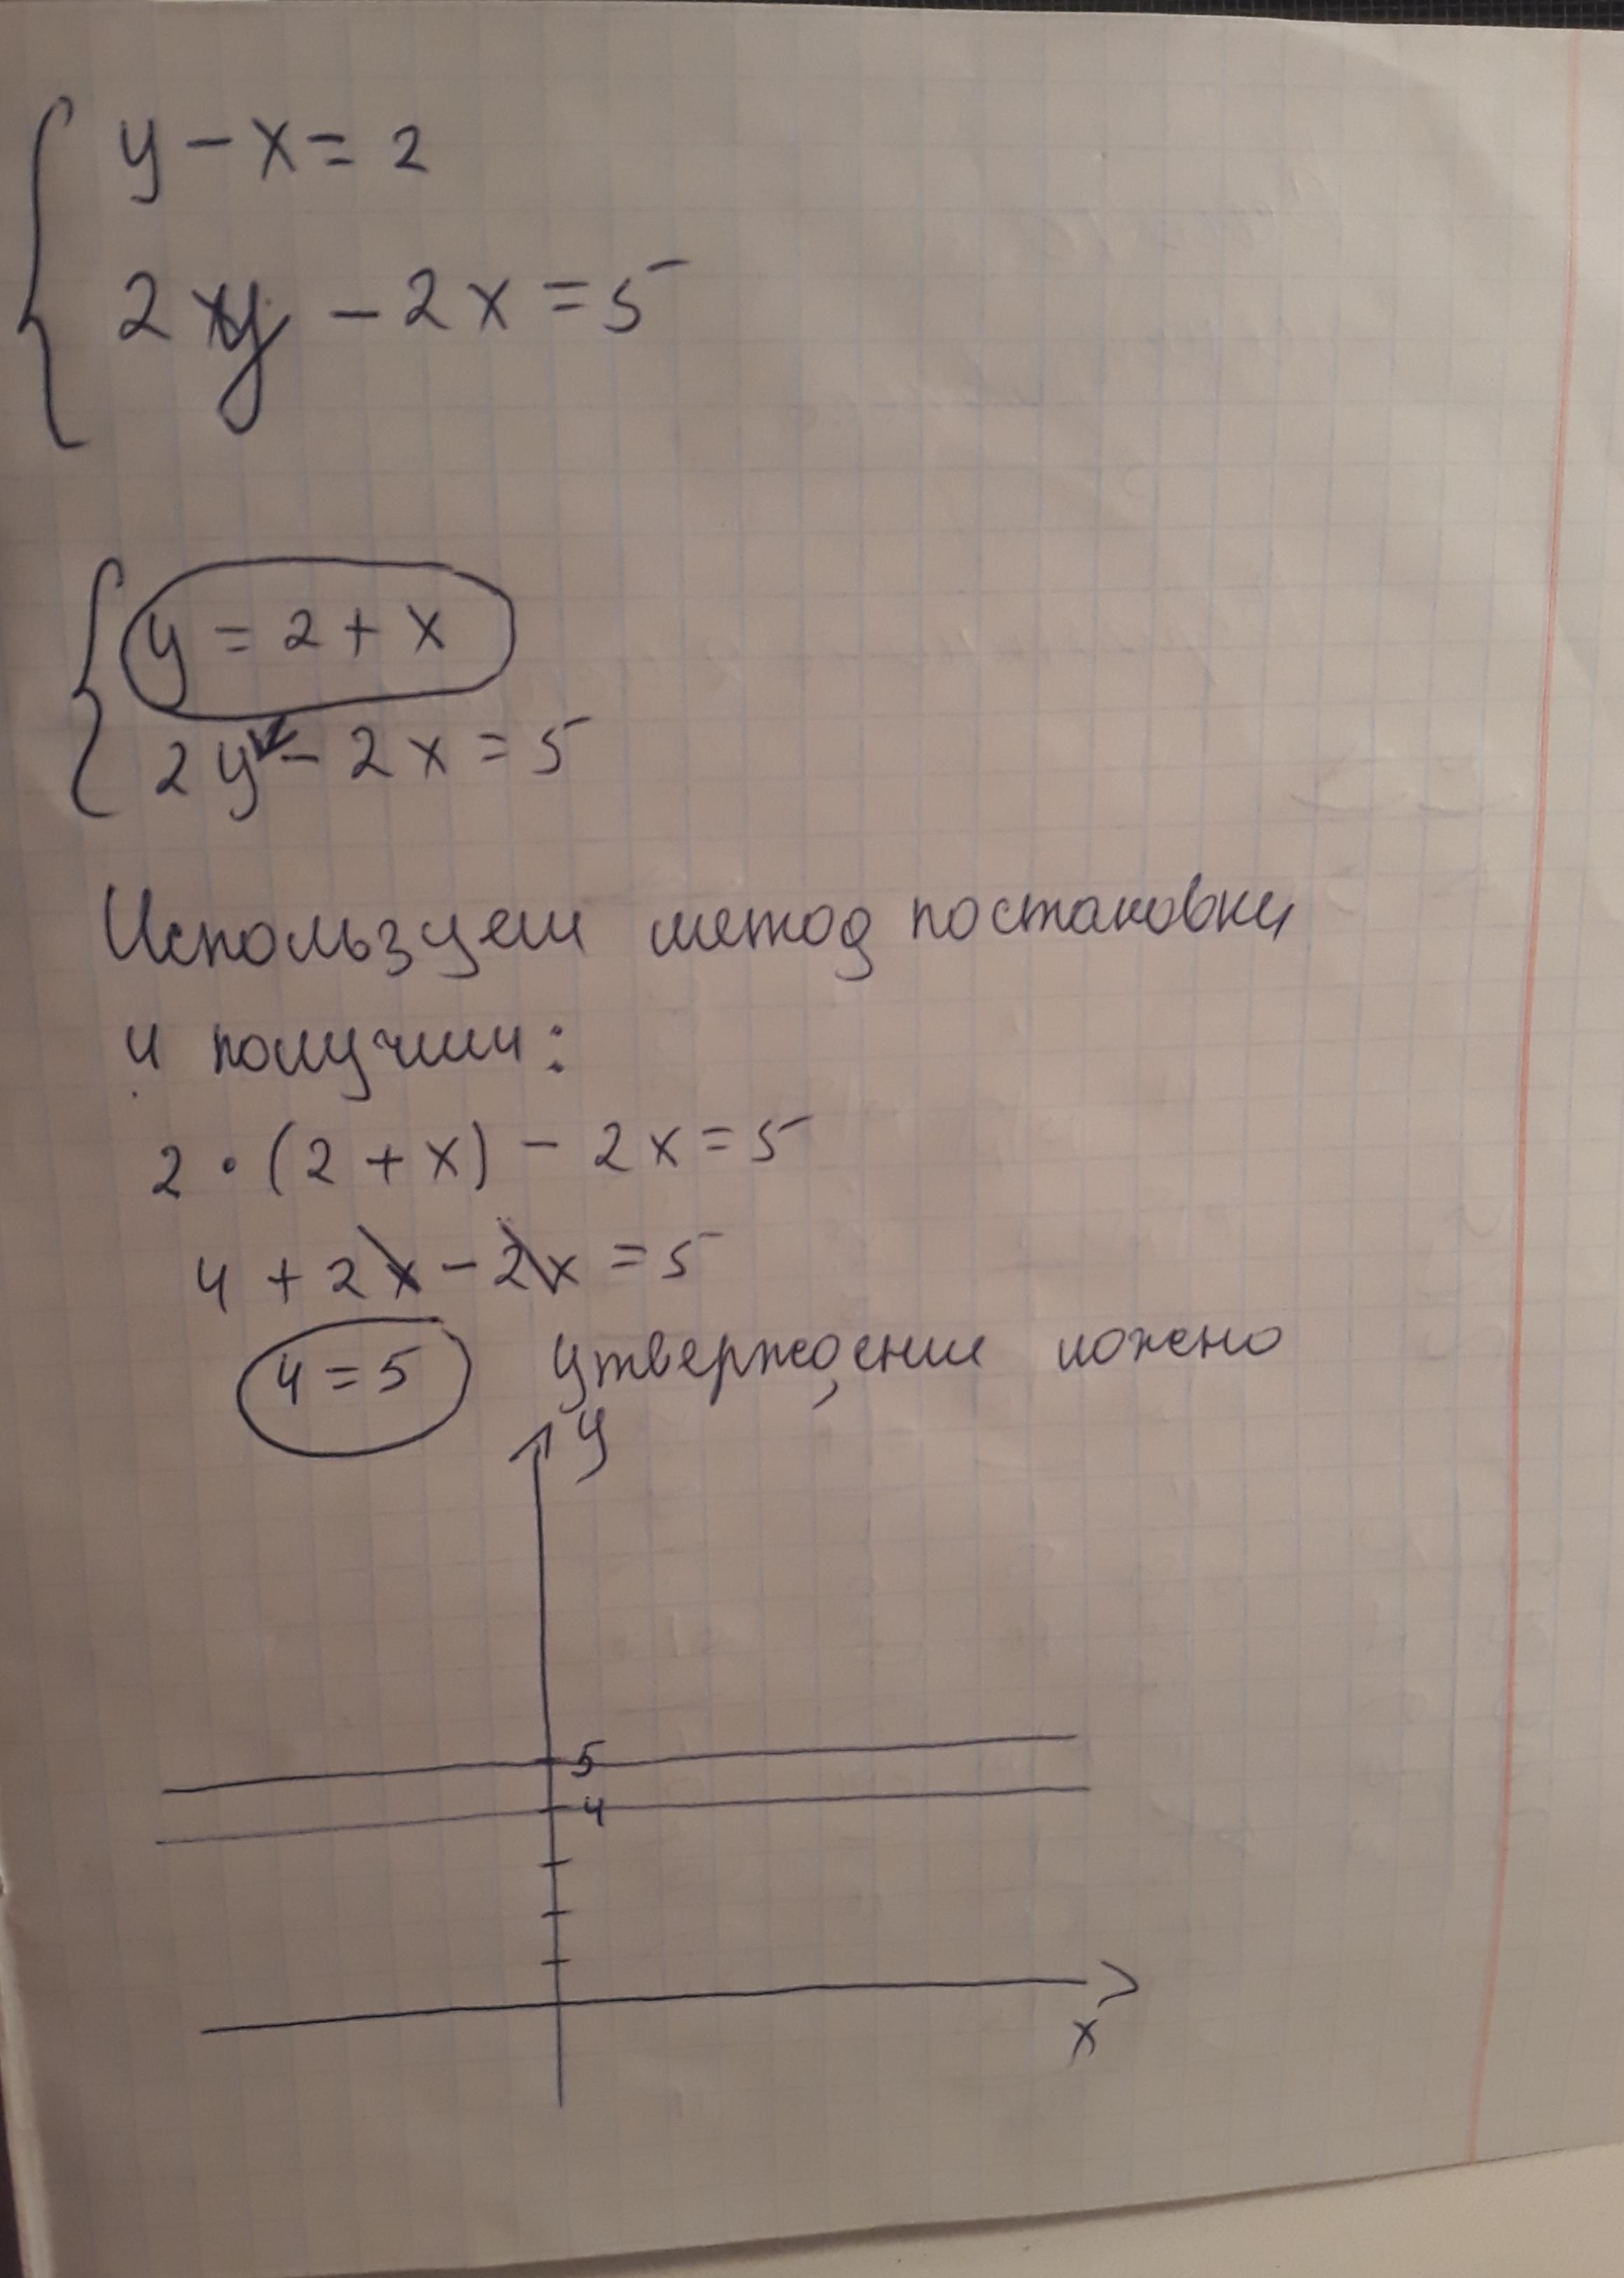 y - x = 2
2y - 2x = 5
y = 2 + x
2y - 2x = 5
Используем метод постановки
и получим:
2 · (2 + x) - 2x = 5
4 + 2x - 2x = 5
4 = 5 утверждение ложно
y
5
4
x